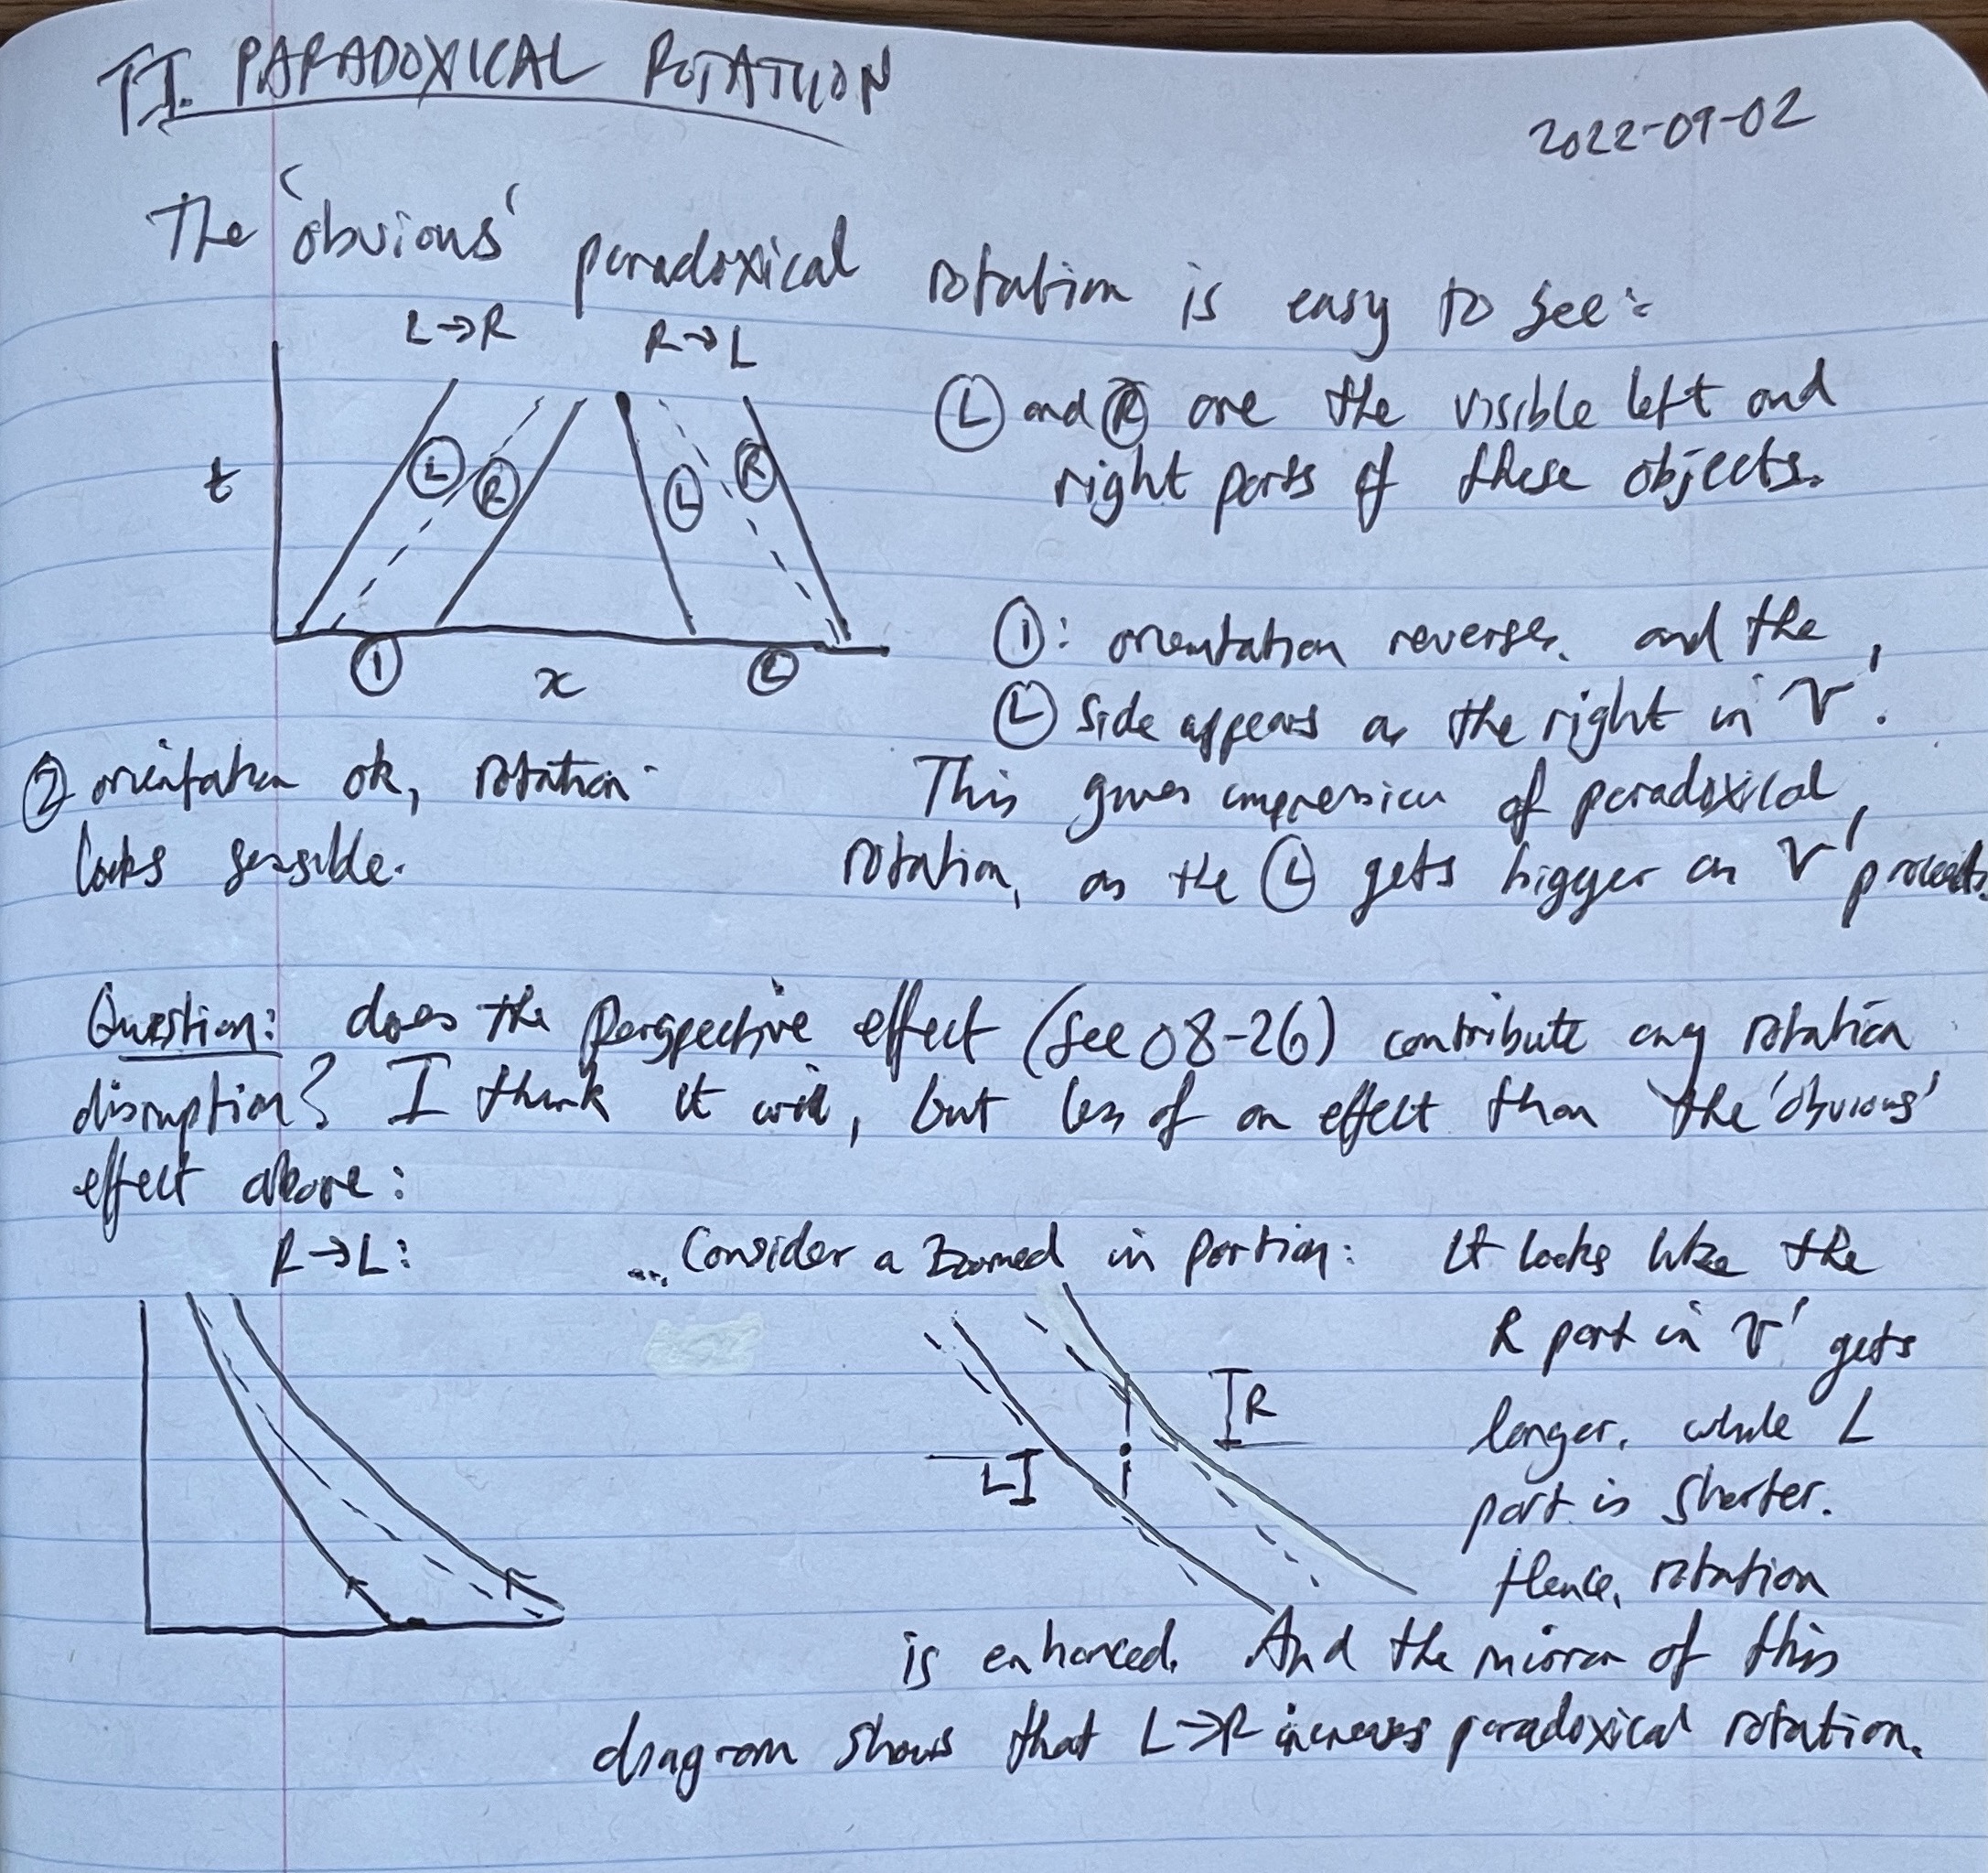 TI. PARADOXICAL ROTATION
2022-09-02
The 'obvious' paradoxical rotation is easy to see:
L→R R→L
t
L R L R
1 x 2
L and R are the visible left and
right parts of these objects.
1: orientation reverses. and the
L side appears as the right in V'.
This gives impression of paradoxical
rotation, as the L gets bigger as V' proceeds.
2 orientation ok, rotation
looks sensible.
Question: does the perspective effect (see 08-26) contribute any rotation
disruption? I think it will, but less of an effect than the 'obvious'
effect above:
R→L:
... Consider a zoomed in portion:
L R
It looks like the
R part in V' gets
longer, while L
part is shorter.
Hence, rotation
is enhanced. And the mirror of this
diagram shows that L→R increases paradoxical rotation.